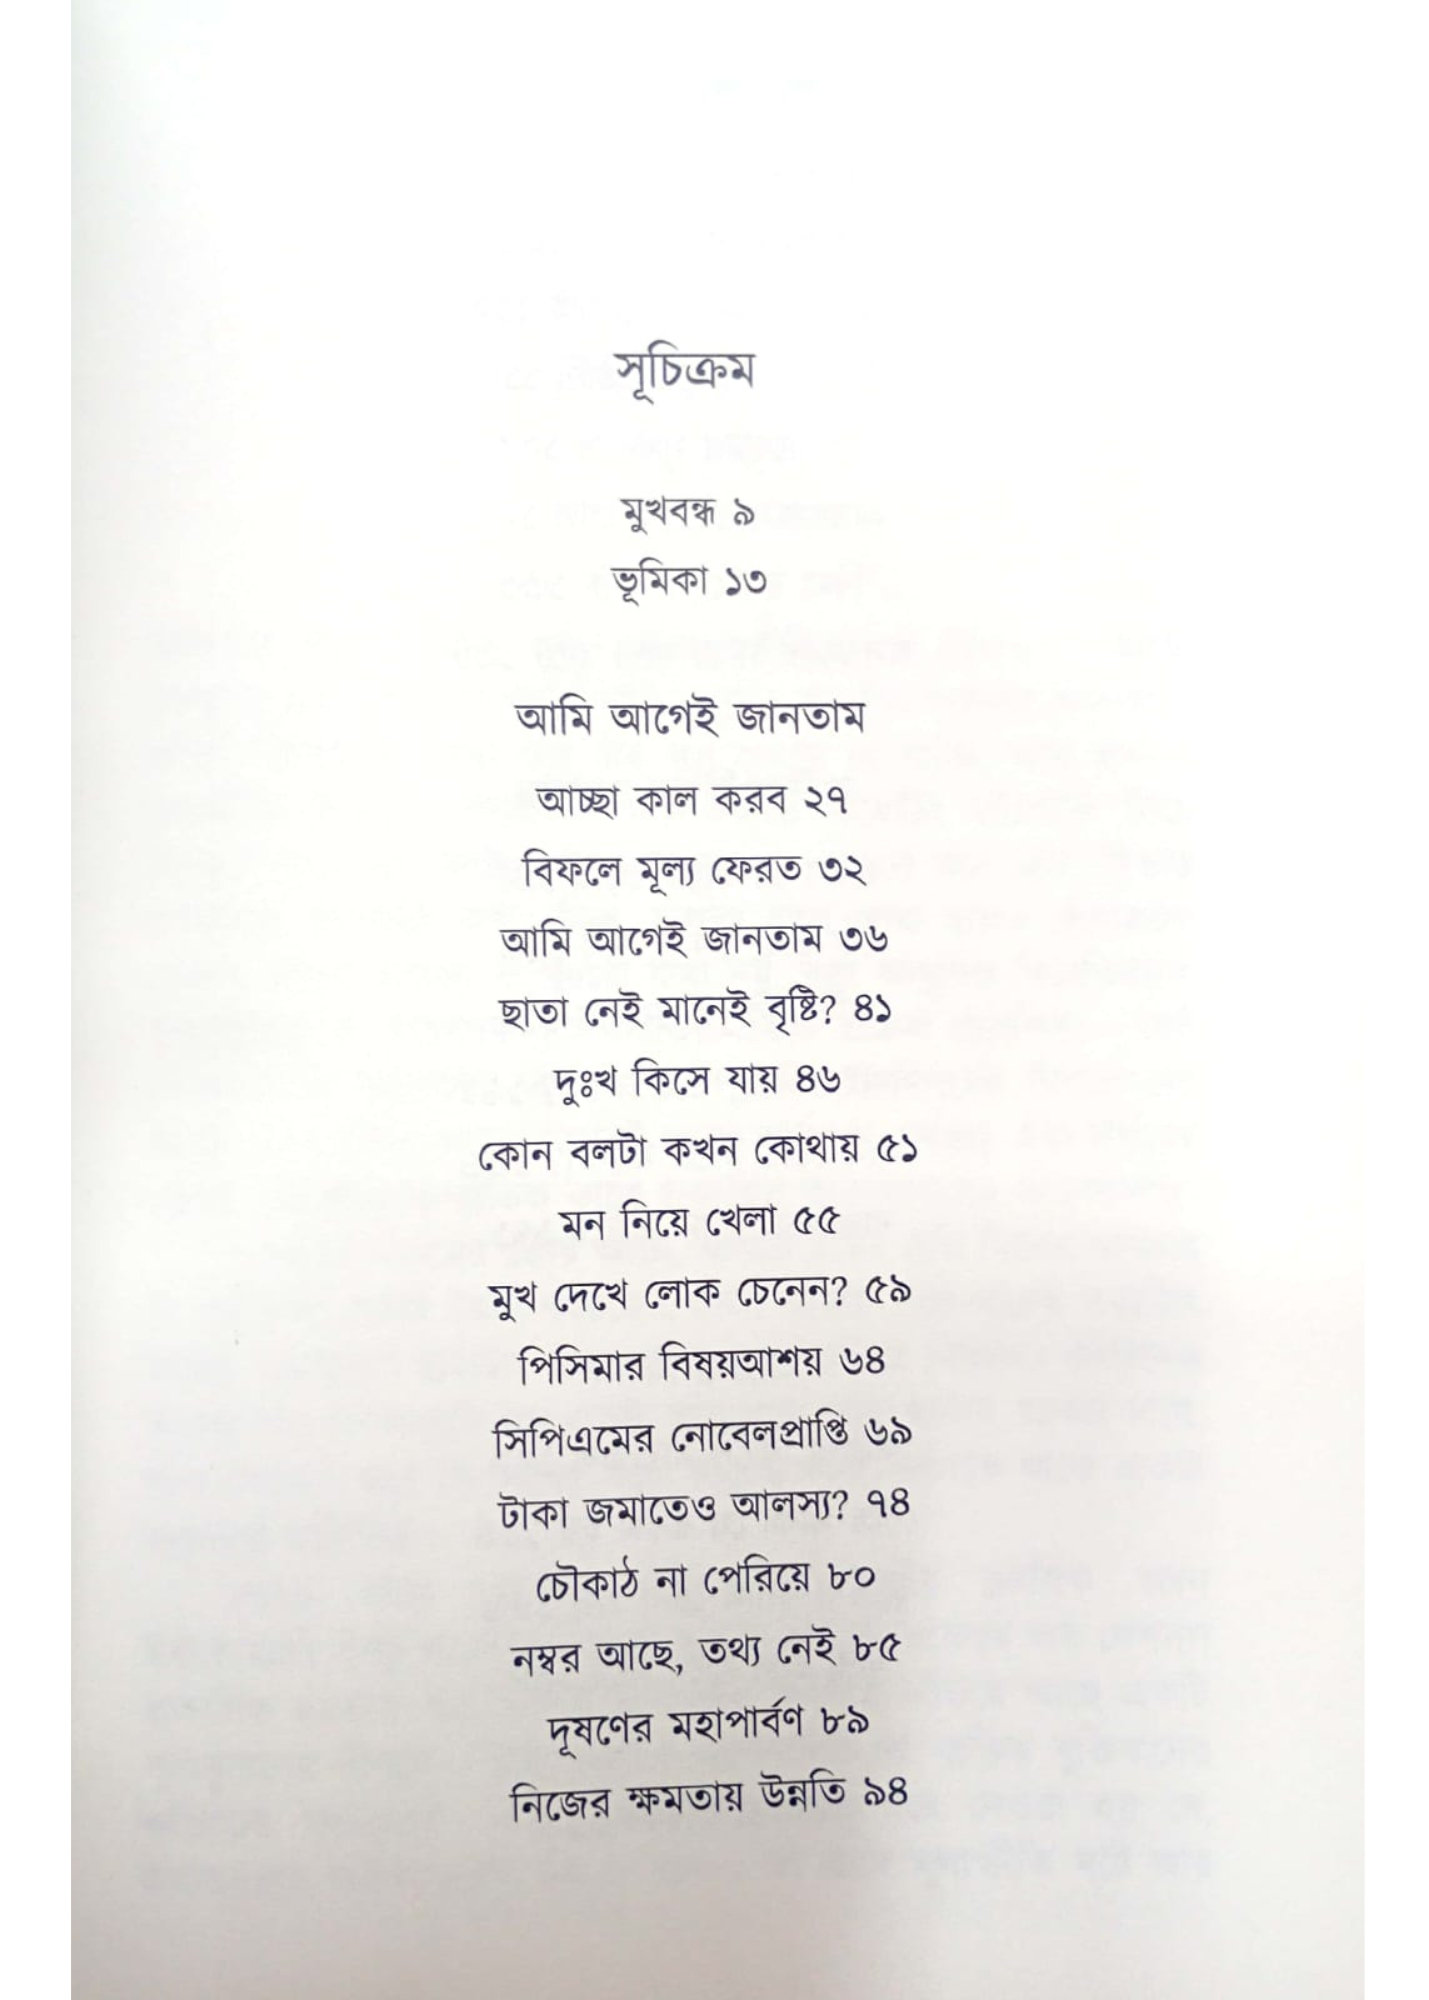 সূচিক্রম
মুখবন্ধ ৯
ভূমিকা ১৩
আমি আগেই জানতাম
আচ্ছা কাল করব ২৭
বিফলে মূল্য ফেরত ৩২
আমি আগেই জানতাম ৩৬
ছাতা নেই মানেই বৃষ্টি? ৪১
দুঃখ কিসে যায় ৪৬
কোন বলটা কখন কোথায় ৫১
মন নিয়ে খেলা ৫৫
মুখ দেখে লোক চেনেন? ৫৯
পিসিমার বিষয়আশয় ৬৪
সিপিএমের নোবেলপ্রাপ্তি ৬৯
টাকা জমাতেও আলস্য? ৭৪
চৌকাঠ না পেরিয়ে ৮০
নম্বর আছে, তথ্য নেই ৮৫
দূষণের মহাপার্বণ ৮৯
নিজের ক্ষমতায় উন্নতি ৯৪